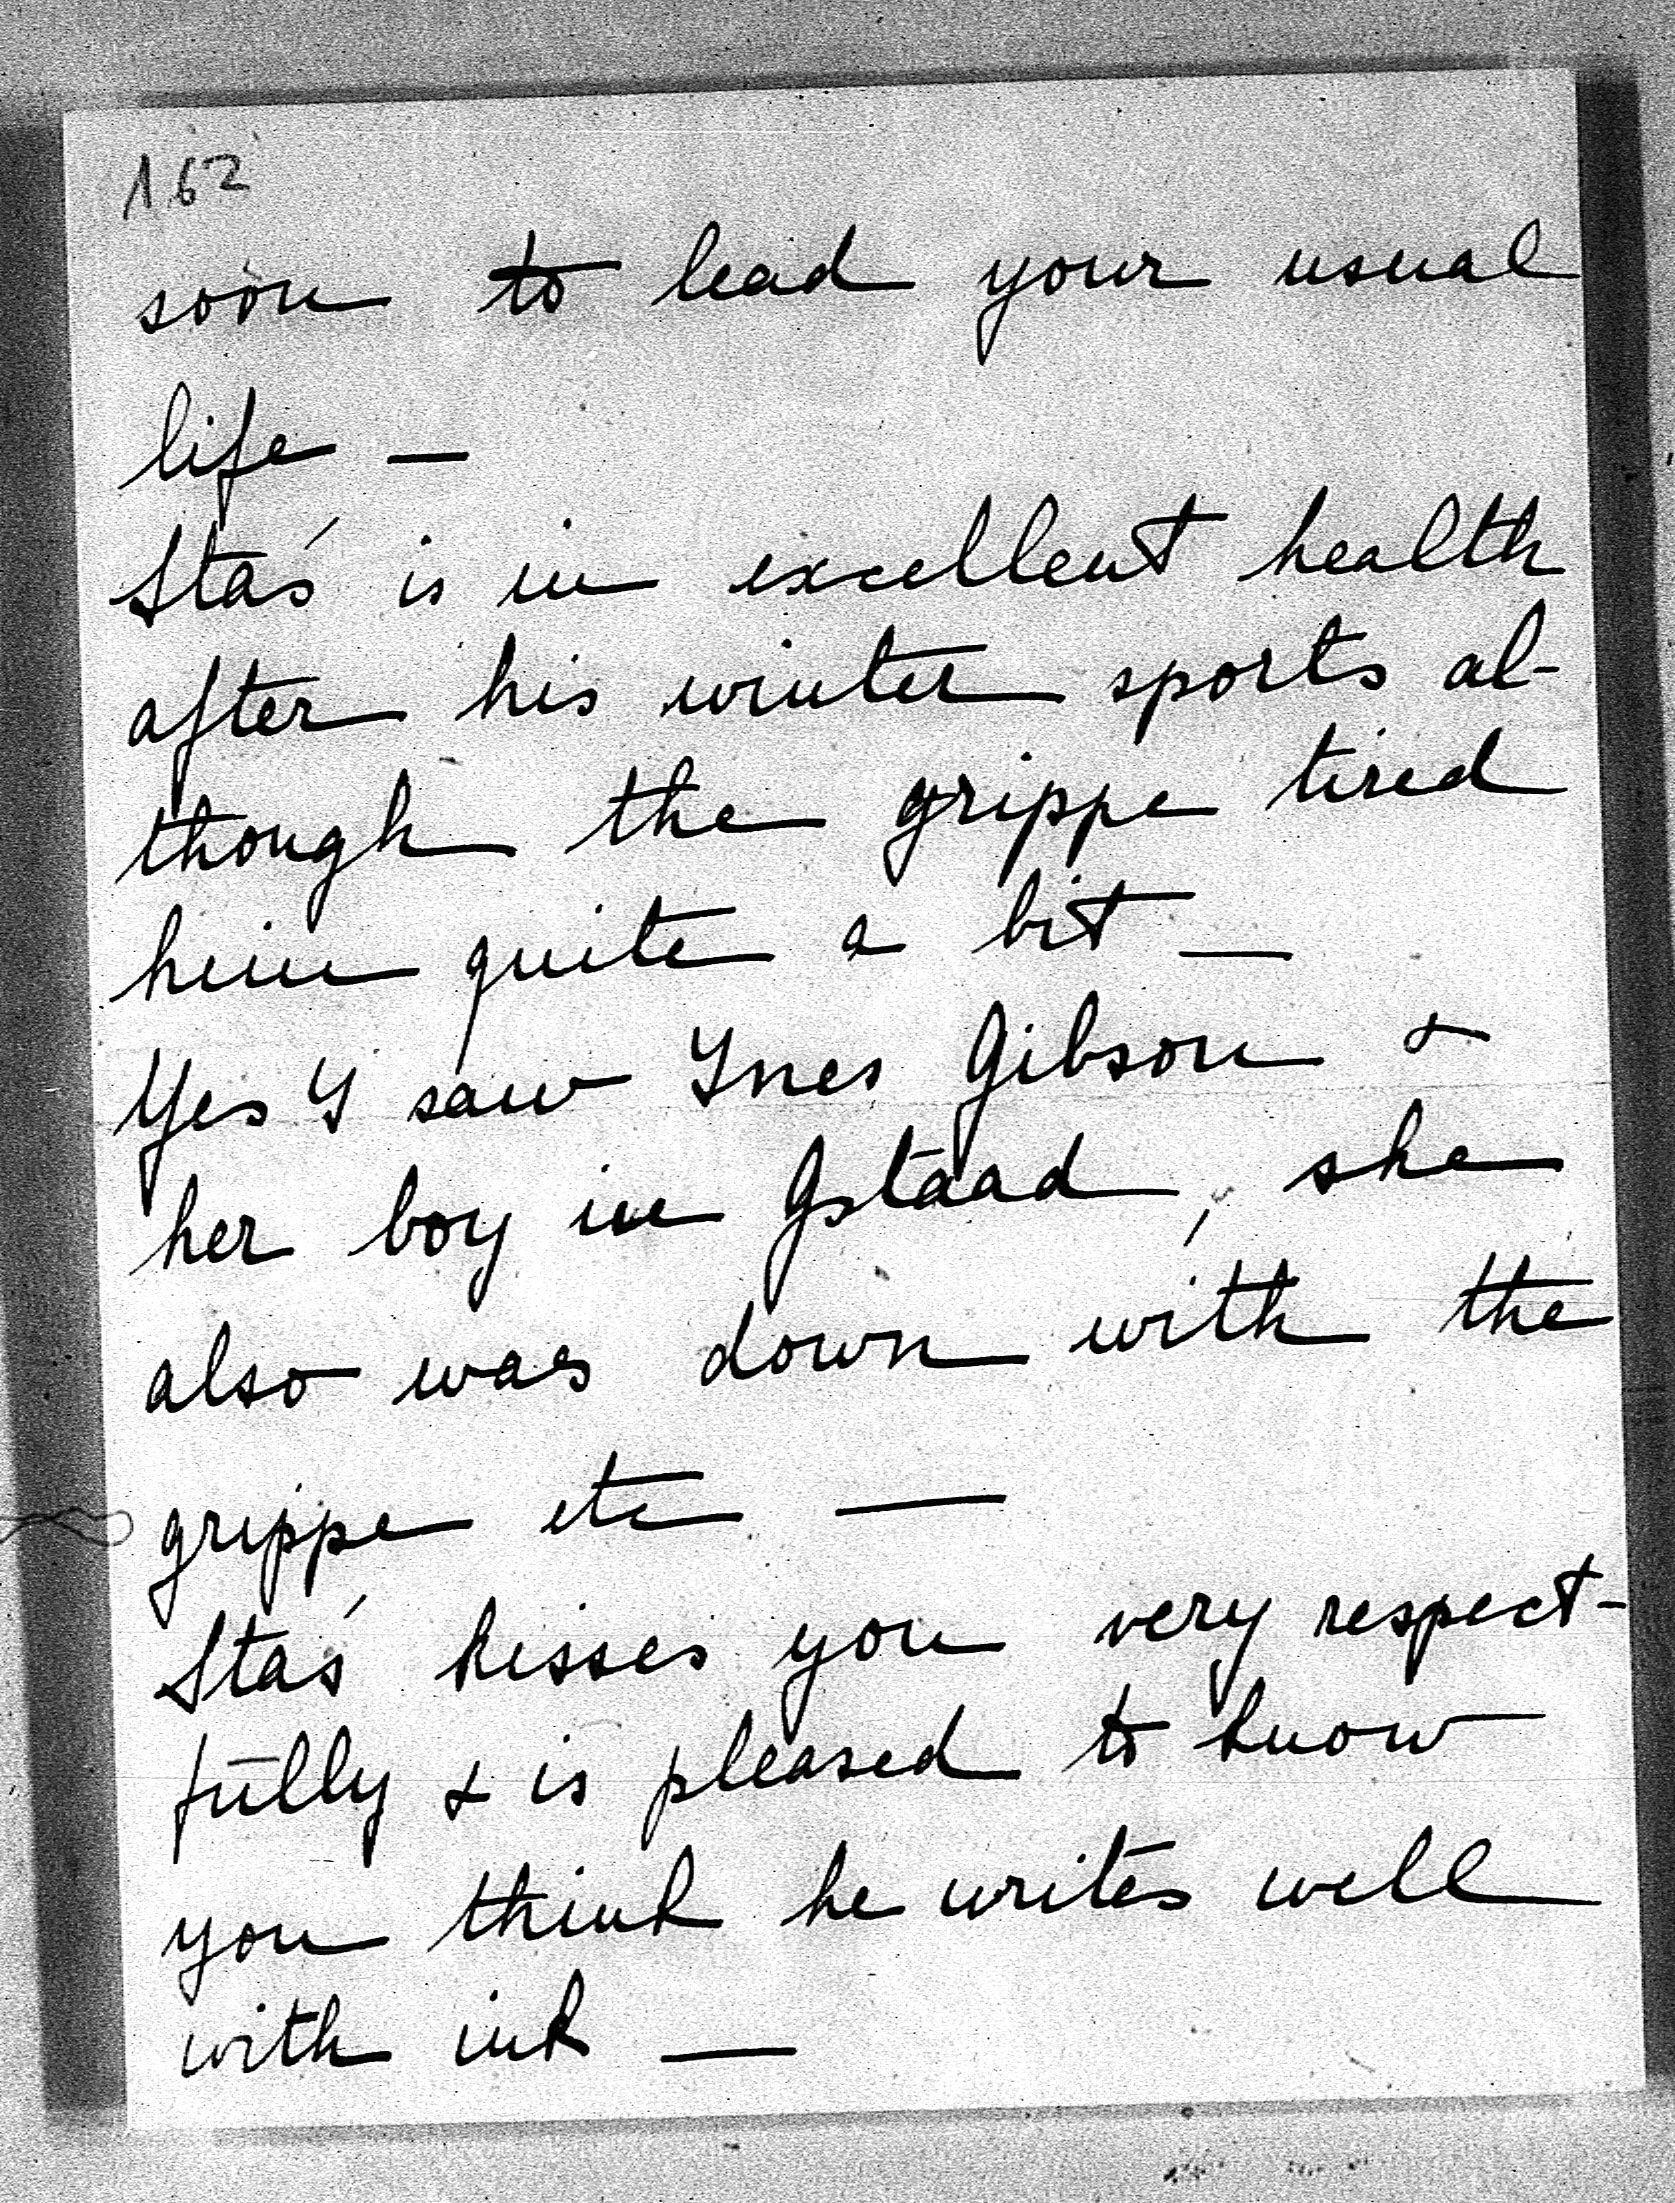 162
soon to lead your usual
life —
Staś is in excellent health
after his winter sports al-
though the grippe tired
him quite a bit —
Yes I saw Ines Gibson &
her boy in Gstaad, she
also was down with the
grippe etc —
Staś kisses you very respect-
fully & is pleased to know
you think he writes well
with ink —